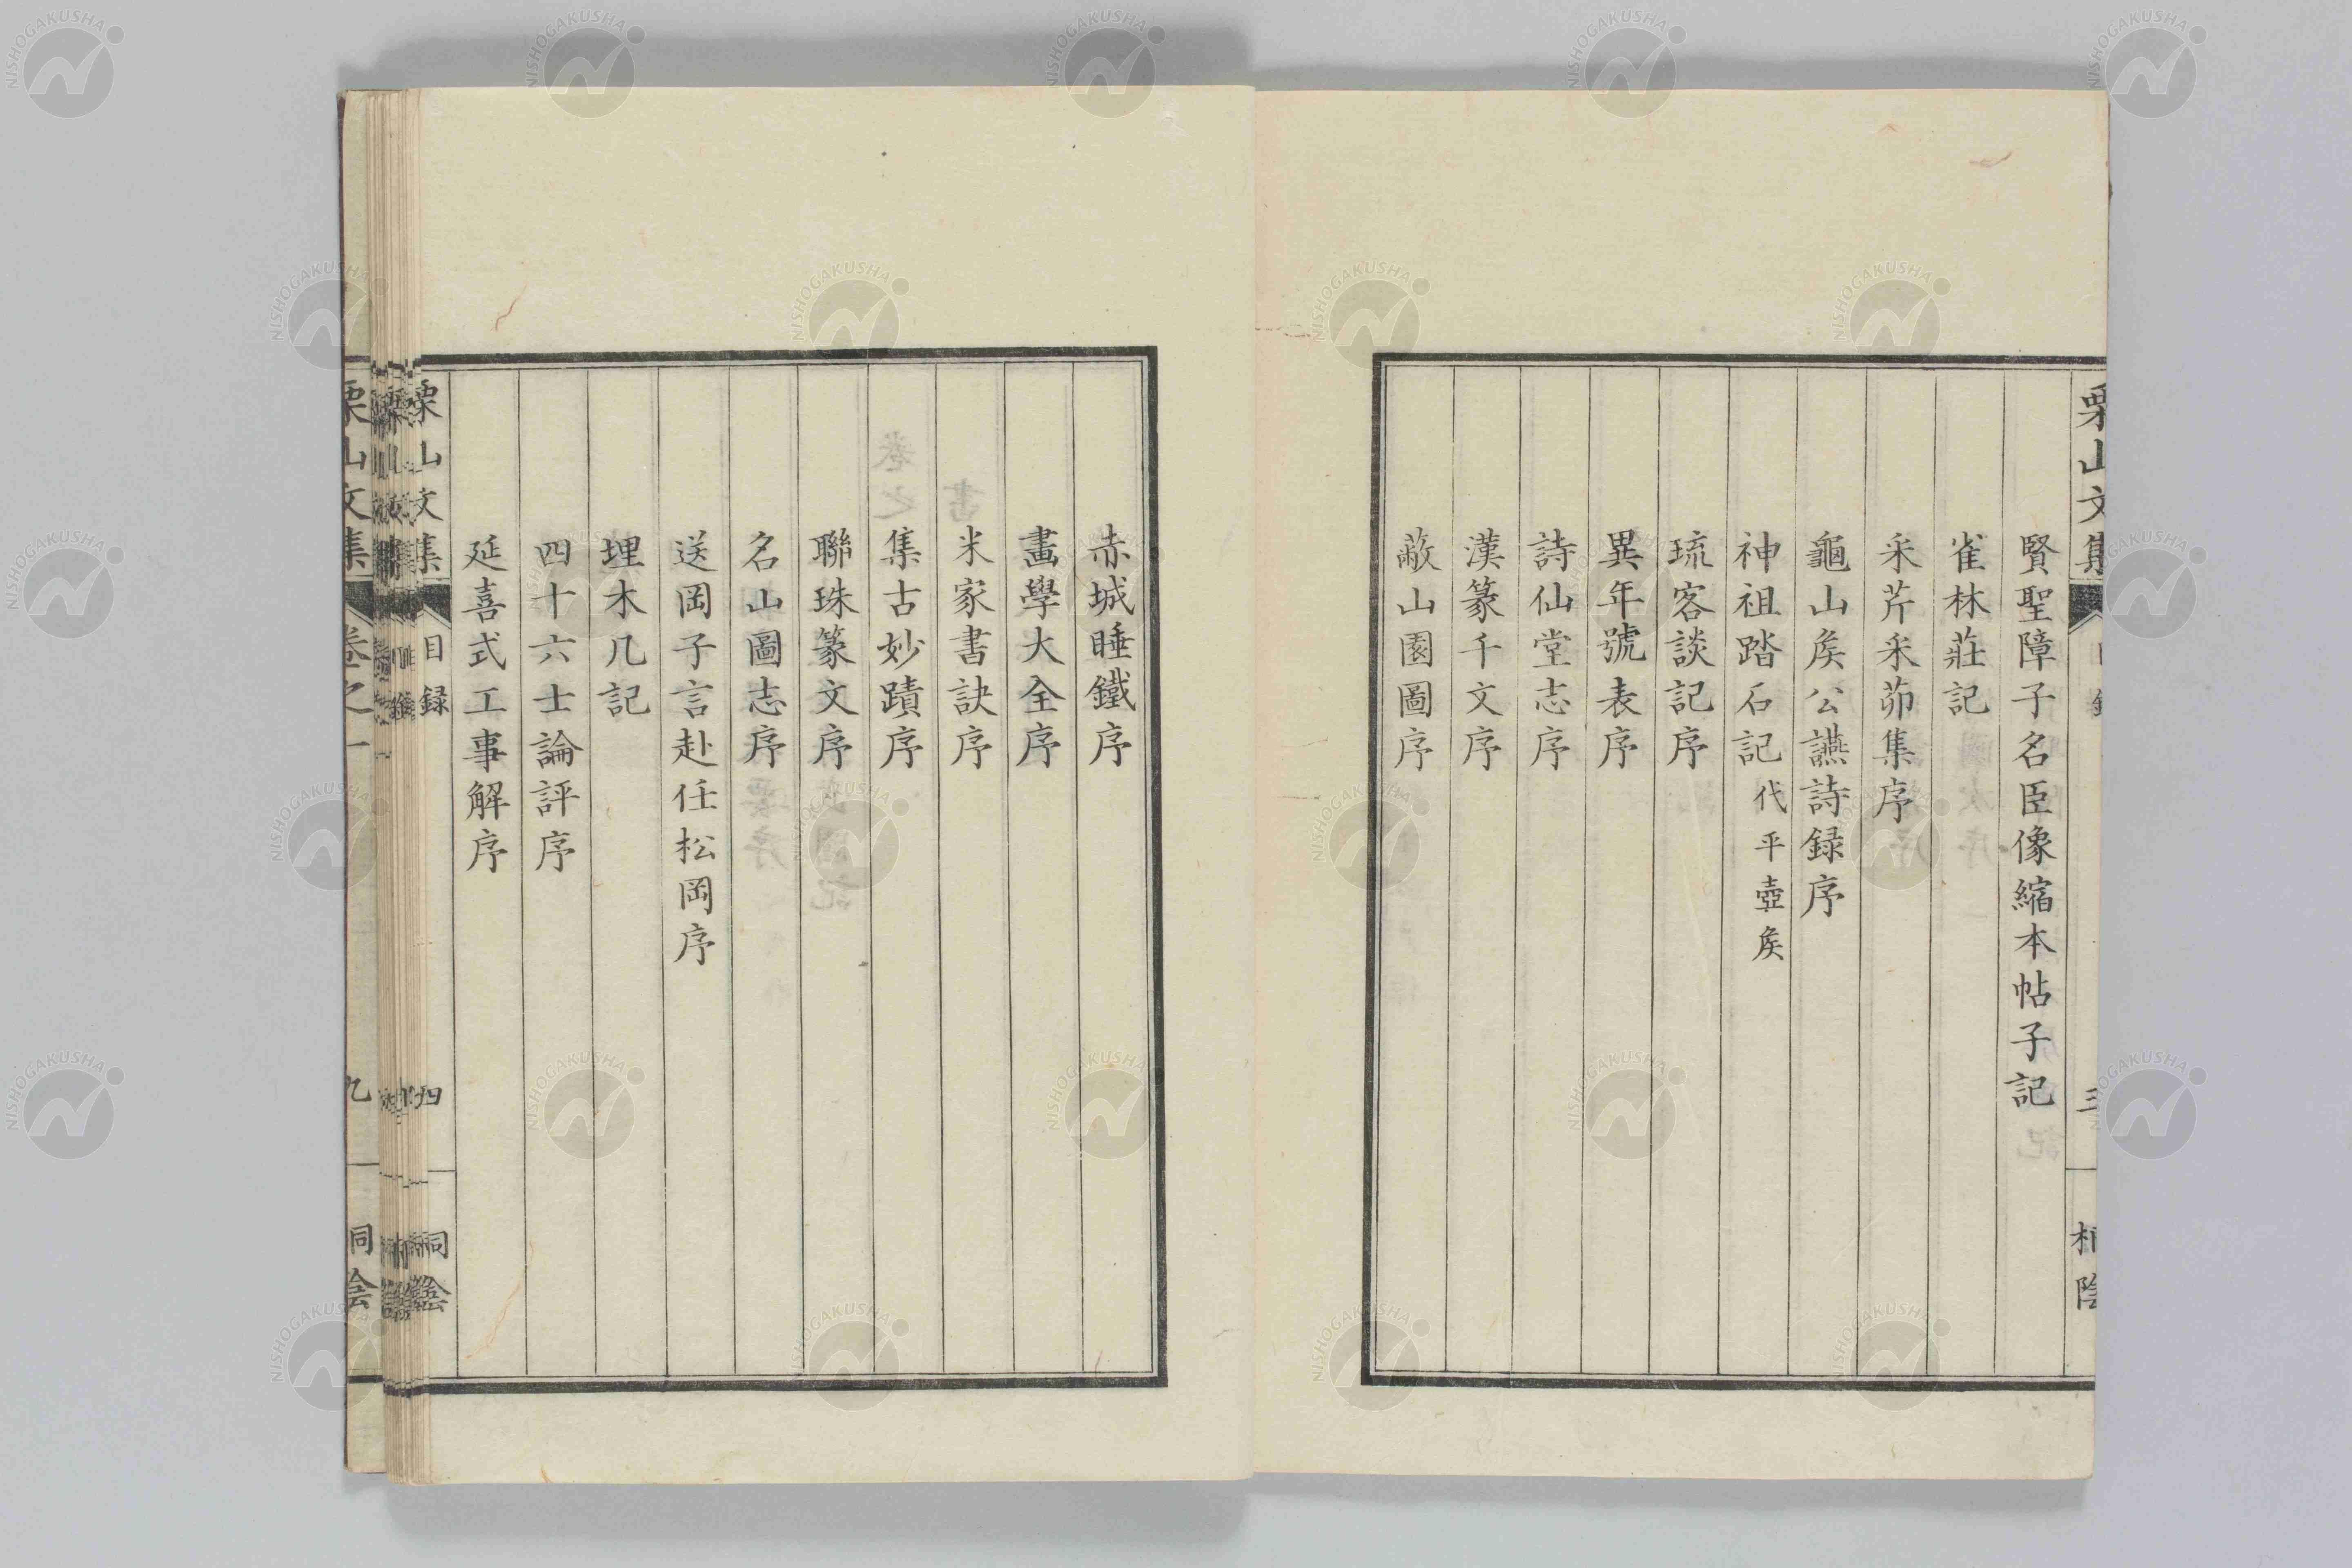 栗山文集
三
賢聖障子名臣像縮本帖子記
雀林莊記
采芹采茆集序
龜山矦公讌詩録序
神祖踏石記代平壺矦
琉客談記序
異年號表序
詩仙堂志序
漢篆千文序
蔽山園圖序
赤城睡鐵序
畫學大全序
米家書訣序
集古妙蹟序
聯珠篆文序
名山圖志序
送岡子言赴任松岡序
埋木几記
四十六士論評序
延喜式工事解序
栗山文集
目録
四
栗山文集
卷之一
九
NISHOGAKUSHA